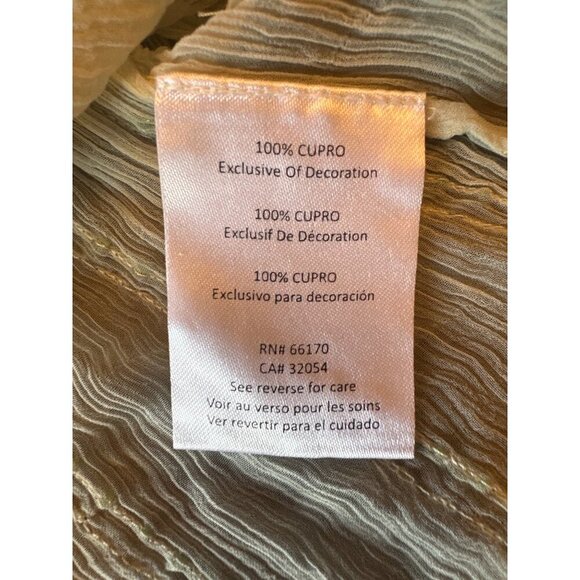 100% CUPRO
Exclusive Of Decoration
100% CUPRO
Exclusif De Décoration
100% CUPRO
Exclusivo para decoración
RN# 66170
CA# 32054
See reverse for care
Voir au verso pour les soins
Ver revertir para el cuidado